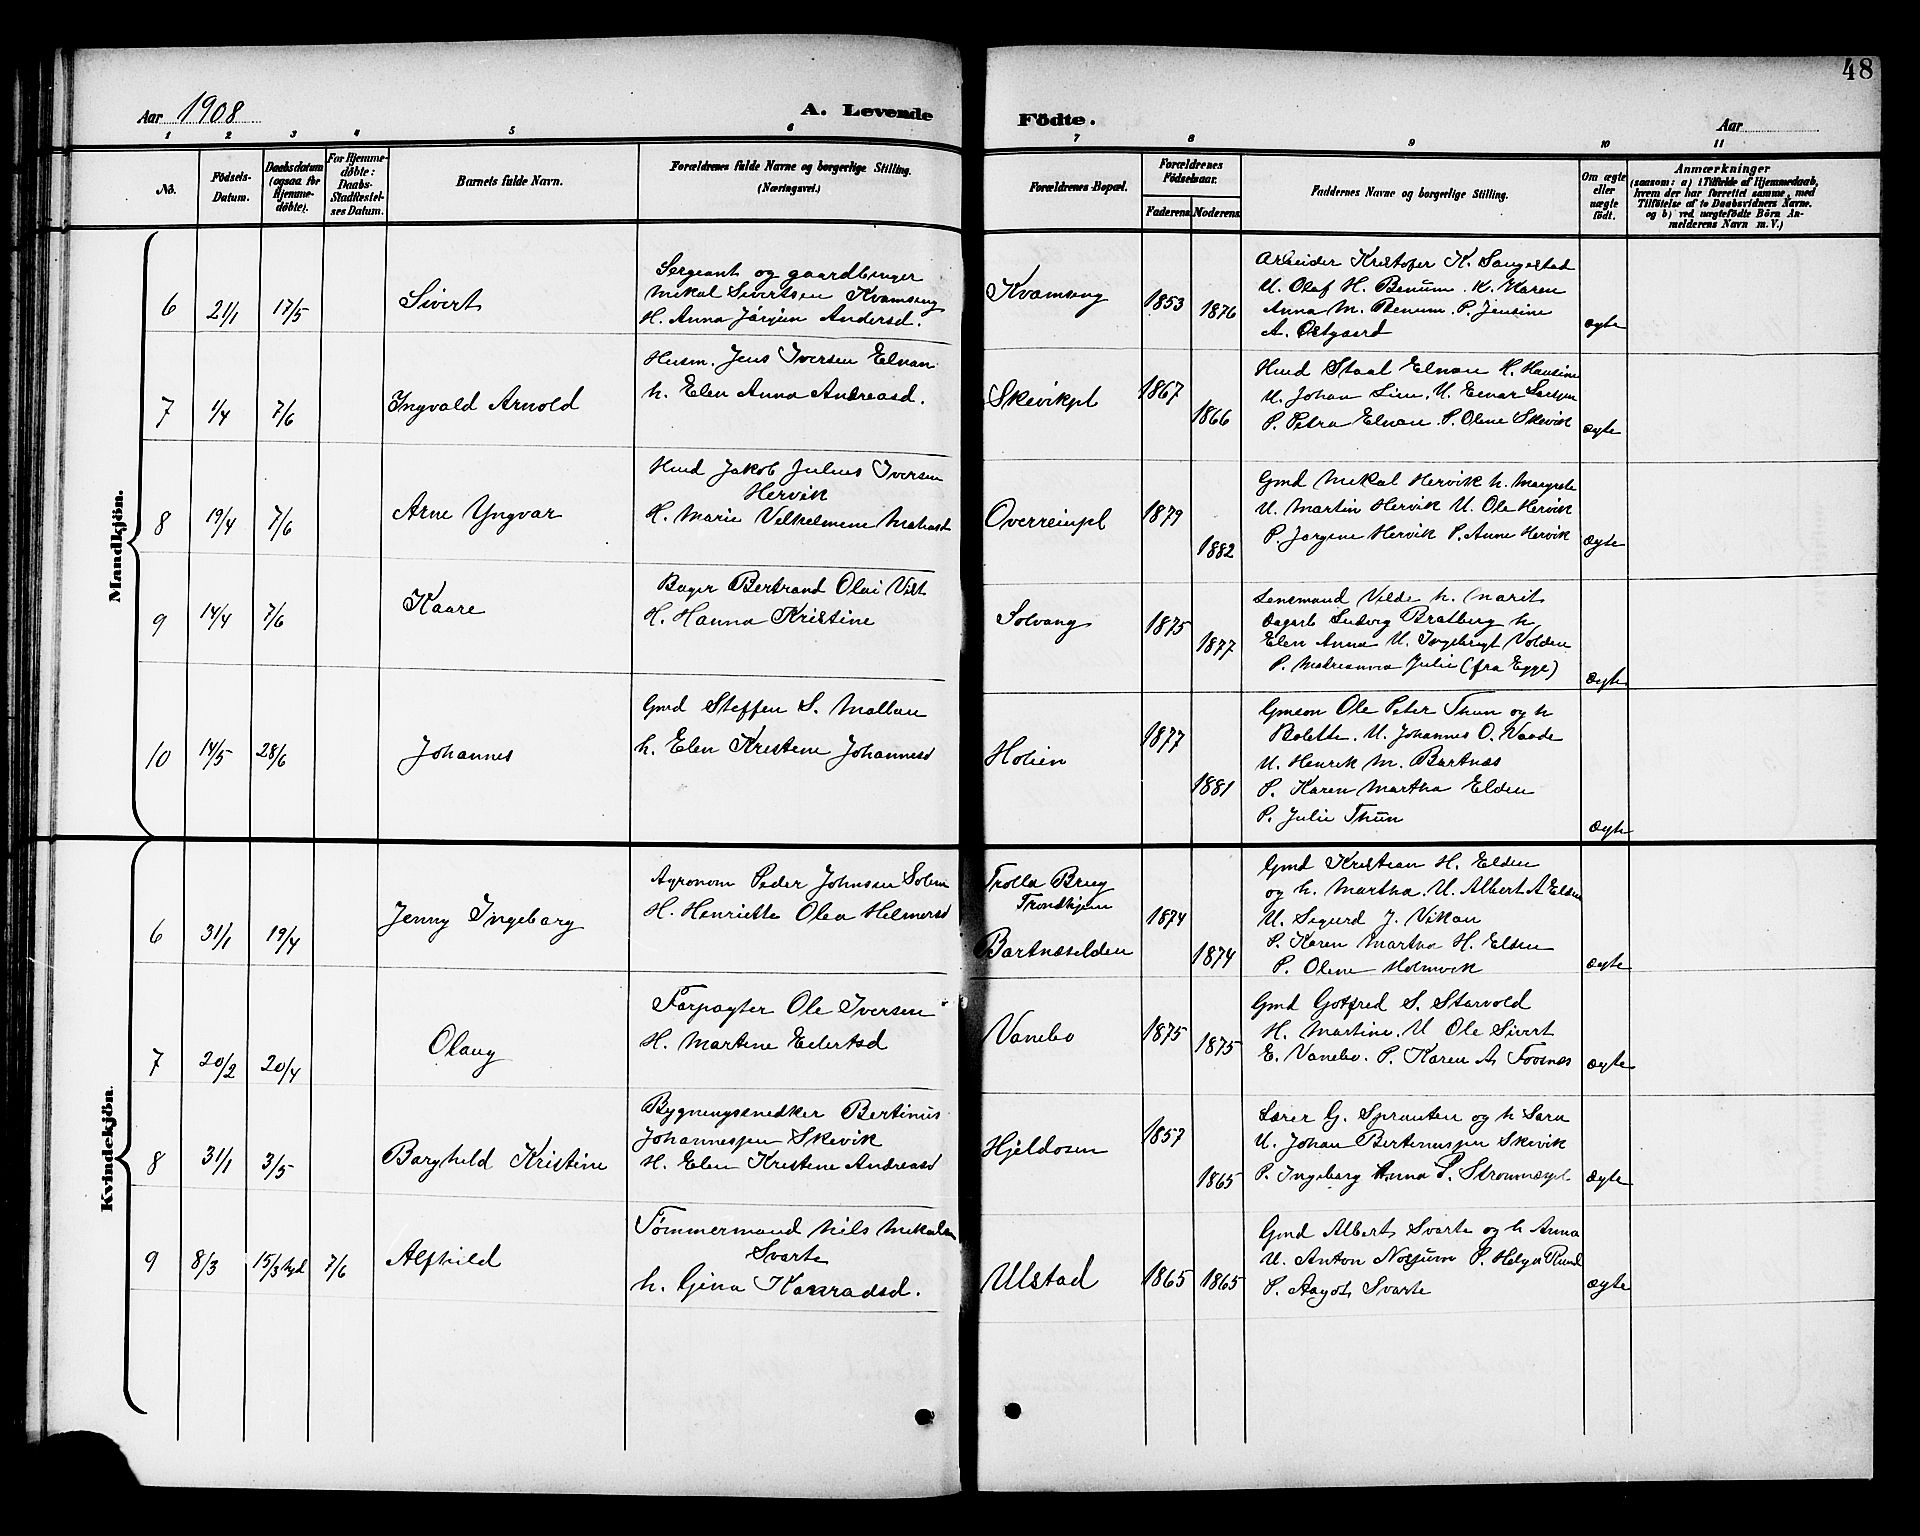 48
Aar 1908
A. Levende
Födte.
Aar
1 2 3 4 5 6 7 8 9 10 11
No.
Födsels-Datum.
Daabsdatum (ogsaa for Hjemme-döbte).
For Hjemme-döbte: Daabs-Stadfæstel-ses Datum.
Barnets fulde Navn.
Forældrenes fulde Navne og borgerlige Stilling. (Næringsvei.)
Forældrenes Bopæl.
Forældrenes Födselsaar.
Faderens.
Moderens.
Faddernes Navne og borgerlige Stilling.
Om ægte eller uægte födt.
Anmærkninger
(saasom: a) i Tilfælde af Hjemmedaab, hvem der har forrettet samme, med Tilföielse af to Daabsvidners Navne. og b) ved uægtefödte Börn An-melderens Navn m. V.)
Mandkjön.
6 21/1 17/5 Sivert
Sergeant og gaardbruger
Mikal Sivertsen Kvamseng
H. Anna Jørgin Andersd.
Kvamseng 1853 1876
Arbeider Kristofer K. Saugestad
U. Olaf H. Benum. K. Karen
Anna M. Benum. P. Jensine
A. Østgaard
ægte
7 1/4 7/6 Ingvald Arnold
Husm. Jens Iversen Elnan
h. Elen Anna Andreasd.
Skevikpl 1867 1866
Hmd Staal Elnan H. Hansine
U. Johan Lien. U. Einar
P. Petra Elnan. P. Oline Skevik
ægte
8 19/4 7/6 Arne Yngvar
Hmd Jakob Julius Iversen
Hervik
H. Marie Vilhelmine
Overreinpl 1879 1882
Gmd Mikal Hervik h. Margrete
U. Martin Hervik U. Ole Hervik
P. Jørgine Hervik P. Anne Hervik
ægte
9 14/4 7/6 Kaare
Bager Bertrand Olai Vist
H. Hanna Kristine
Solvang 1875 1877
Lensmand Velde h. Marit
Ludvig Bratberg h
Elen Anna U. Ingebrigt Volden
P. Julie (fra Egge)
ægte
10 14/5 28/6 Johannes
Gmd Steffen S. Mollan
h. Elen Kristine Johannesd
Holien 1877 1881
Gmson Ole Peter Thun og h
Bolette. U. Johannes O. Vaade
U. Henrik M. Bartnæs
P. Karen Martha Elden
P. Julie Thun
ægte
Kvindekjön.
6 31/1 19/4 Jenny Ingeborg
Agronom Peder Johnsen Solem
H. Henriette Olea Helmersd
Trolla Brug
Trondhjem
Bartnæselden
1874 1874
Gmd Kristian H. Elden
og h. Martha. U. Albert A Elden
U. Sigurd J. Vikan
P. Karen Martha H. Elden
P. Oline Holmvik
ægte
7 20/2 20/4 Olaug
Forpagter Ole Iversen
H. Martine Eilertsd
Vanebo 1875 1875
Gmd Gotfred S. Starvold
H. Martine. U Ole Sivert
E. Vanebo. P. Karen A Fosnæs
ægte
8 31/1 3/5 Borghild Kristine
Bygningssnedker Bertinus
Johannesen Skevik
H. Elen Kristine Andreasd
Hjeldosen 1857 1865
Lærer G. Sprauten og h Sara
U. Johan Bertinussen Skevik
P. Ingeborg Anna P. Strømnæspl
ægte
9 8/3 15/3 hjd 7/6 Alfhild
Tømmermand Nils Mikalsen
Svarte
h. Gina Konradsd.
Ulstad 1865 1865
Gmd Albert Svarte og h Anna
U. Anton Nossum P. Helga Rund
P. Aagot Svarte
ægte